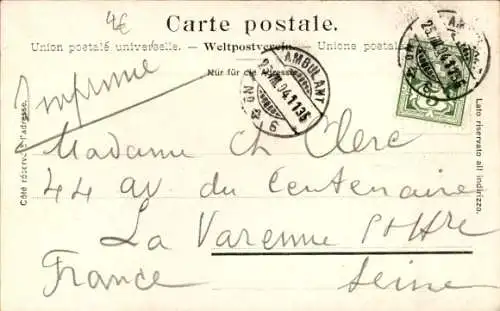 4€
Carte postale.
Union postale universelle. — Weltpostverein. — Unione postale
Nur für die Adresse.
AMBULANT
25.VIII.04.11 35
No 6
25.VIII.04.11 35
No
Imprimé
Côté réservé à l'adresse.
Lato riservato all indirizzo.
Madame Ch Clerc
44 av. du Centenaire
La Varenne
France Seine